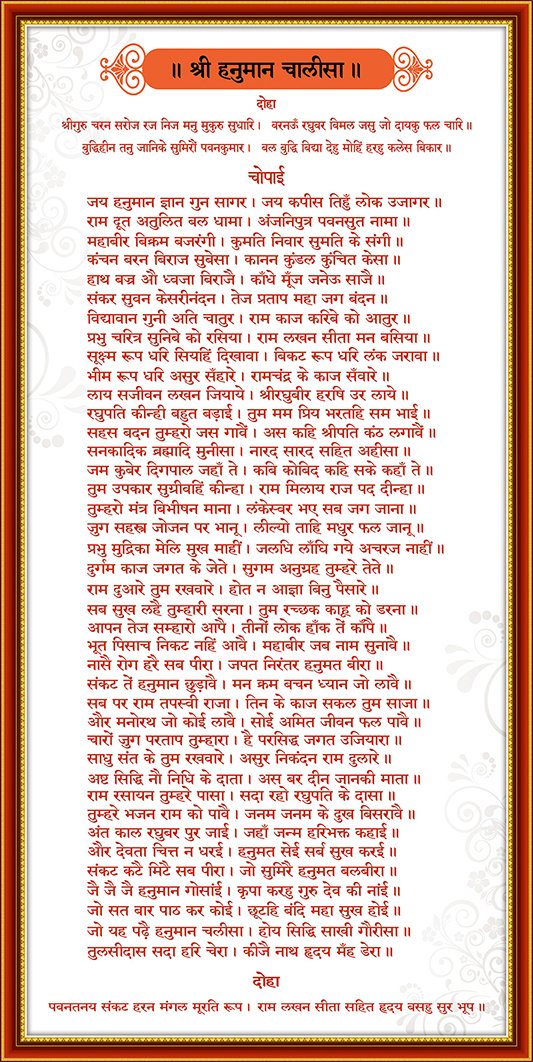 ॥ श्री हनुमान चालीसा ॥
दोहा
श्रीगुरु चरन सरोज रज निज मनु मुकुरु सुधारि। बरनऊँ रघुबर बिमल जसु जो दायकु फल चारि॥
बुद्धिहीन तनु जानिके सुमिरौं पवनकुमार। बल बुद्धि विद्या देहु मोहिं हरहु कलेस बिकार॥
चोपाई
जय हनुमान ज्ञान गुन सागर। जय कपीस तिहुँ लोक उजागर॥
राम दूत अतुलित बल धामा। अंजनिपुत्र पवनसुत नामा॥
महाबीर बिक्रम बजरंगी। कुमति निवार सुमति के संगी॥
कंचन बरन बिराज सुबेसा। कानन कुंडल कुंचित केसा॥
हाथ बज्र औ ध्वजा बिराजै। काँधे मूँज जनेऊ साजै॥
संकर सुवन केसरीनंदन। तेज प्रताप महा जग बंदन॥
विद्यावान गुनी अति चातुर। राम काज करिबे को आतुर॥
प्रभु चरित्र सुनिबे को रसिया। राम लखन सीता मन बसिया॥
सूक्ष्म रूप धरि सियहिं दिखावा। बिकट रूप धरि लंक जरावा॥
भीम रूप धरि असुर सँहारे। रामचंद्र के काज सँवारे॥
लाय सजीवन लखन जियाये। श्रीरघुबीर हरषि उर लाये॥
रघुपति कीन्ही बहुत बड़ाई। तुम मम प्रिय भरतहि सम भाई॥
सहस बदन तुम्हरो जस गावैं। अस कहि श्रीपति कंठ लगावैं॥
सनकादिक ब्रह्मादि मुनीसा। नारद सारद सहित अहीसा॥
जम कुबेर दिगपाल जहाँ ते। कबि कोबिद कहि सके कहाँ ते॥
तुम उपकार सुग्रीवहिं कीन्हा। राम मिलाय राज पद दीन्हा॥
तुम्हरो मंत्र बिभीषन माना। लंकेस्वर भए सब जग जाना॥
जुग सहस्त्र जोजन पर भानू। लील्यो ताहि मधुर फल जानू॥
प्रभु मुद्रिका मेलि मुख माहीं। जलधि लाँघि गये अचरज नाहीं॥
दुर्गम काज जगत के जेते। सुगम अनुग्रह तुम्हरे तेते॥
राम दुआरे तुम रखवारे। होत न आज्ञा बिनु पैसारे॥
सब सुख लहै तुम्हारी सरना। तुम रच्छक काहू को डरना॥
आपन तेज सम्हारो आपै। तीनों लोक हाँक तें काँपै॥
भूत पिसाच निकट नहिं आवै। महाबीर जब नाम सुनावै॥
नासै रोग हरै सब पीरा। जपत निरंतर हनुमत बीरा॥
संकट तें हनुमान छुड़ावै। मन क्रम बचन ध्यान जो लावै॥
सब पर राम तपस्वी राजा। तिन के काज सकल तुम साजा॥
और मनोरथ जो कोई लावै। सोई अमित जीवन फल पावै॥
चारों जुग परताप तुम्हारा। है परसिद्ध जगत उजियारा॥
साधु संत के तुम रखवारे। असुर निकंदन राम दुलारे॥
अष्ट सिद्धि नौ निधि के दाता। अस बर दीन जानकी माता॥
राम रसायन तुम्हरे पासा। सदा रहो रघुपति के दासा॥
तुम्हरे भजन राम को पावै। जनम जनम के दुख बिसरावै॥
अंत काल रघुबर पुर जाई। जहाँ जन्म हरिभक्त कहाई॥
और देवता चित्त न धरई। हनुमत सेई सर्ब सुख करई॥
संकट कटै मिटै सब पीरा। जो सुमिरै हनुमत बलबीरा॥
जै जै जै हनुमान गोसांई। कृपा करहु गुरु देव की नांई॥
जो सत बार पाठ कर कोई। छूटहि बंदि महा सुख होई॥
जो यह पढ़ै हनुमान चलीसा। होय सिद्धि साखी गौरीसा॥
तुलसीदास सदा हरि चेरा। कीजै नाथ हृदय मँह डेरा॥
दोहा
पवनतनय संकट हरन मंगल मूरति रूप। राम लखन सीता सहित हृदय बसहु सुर भूप॥